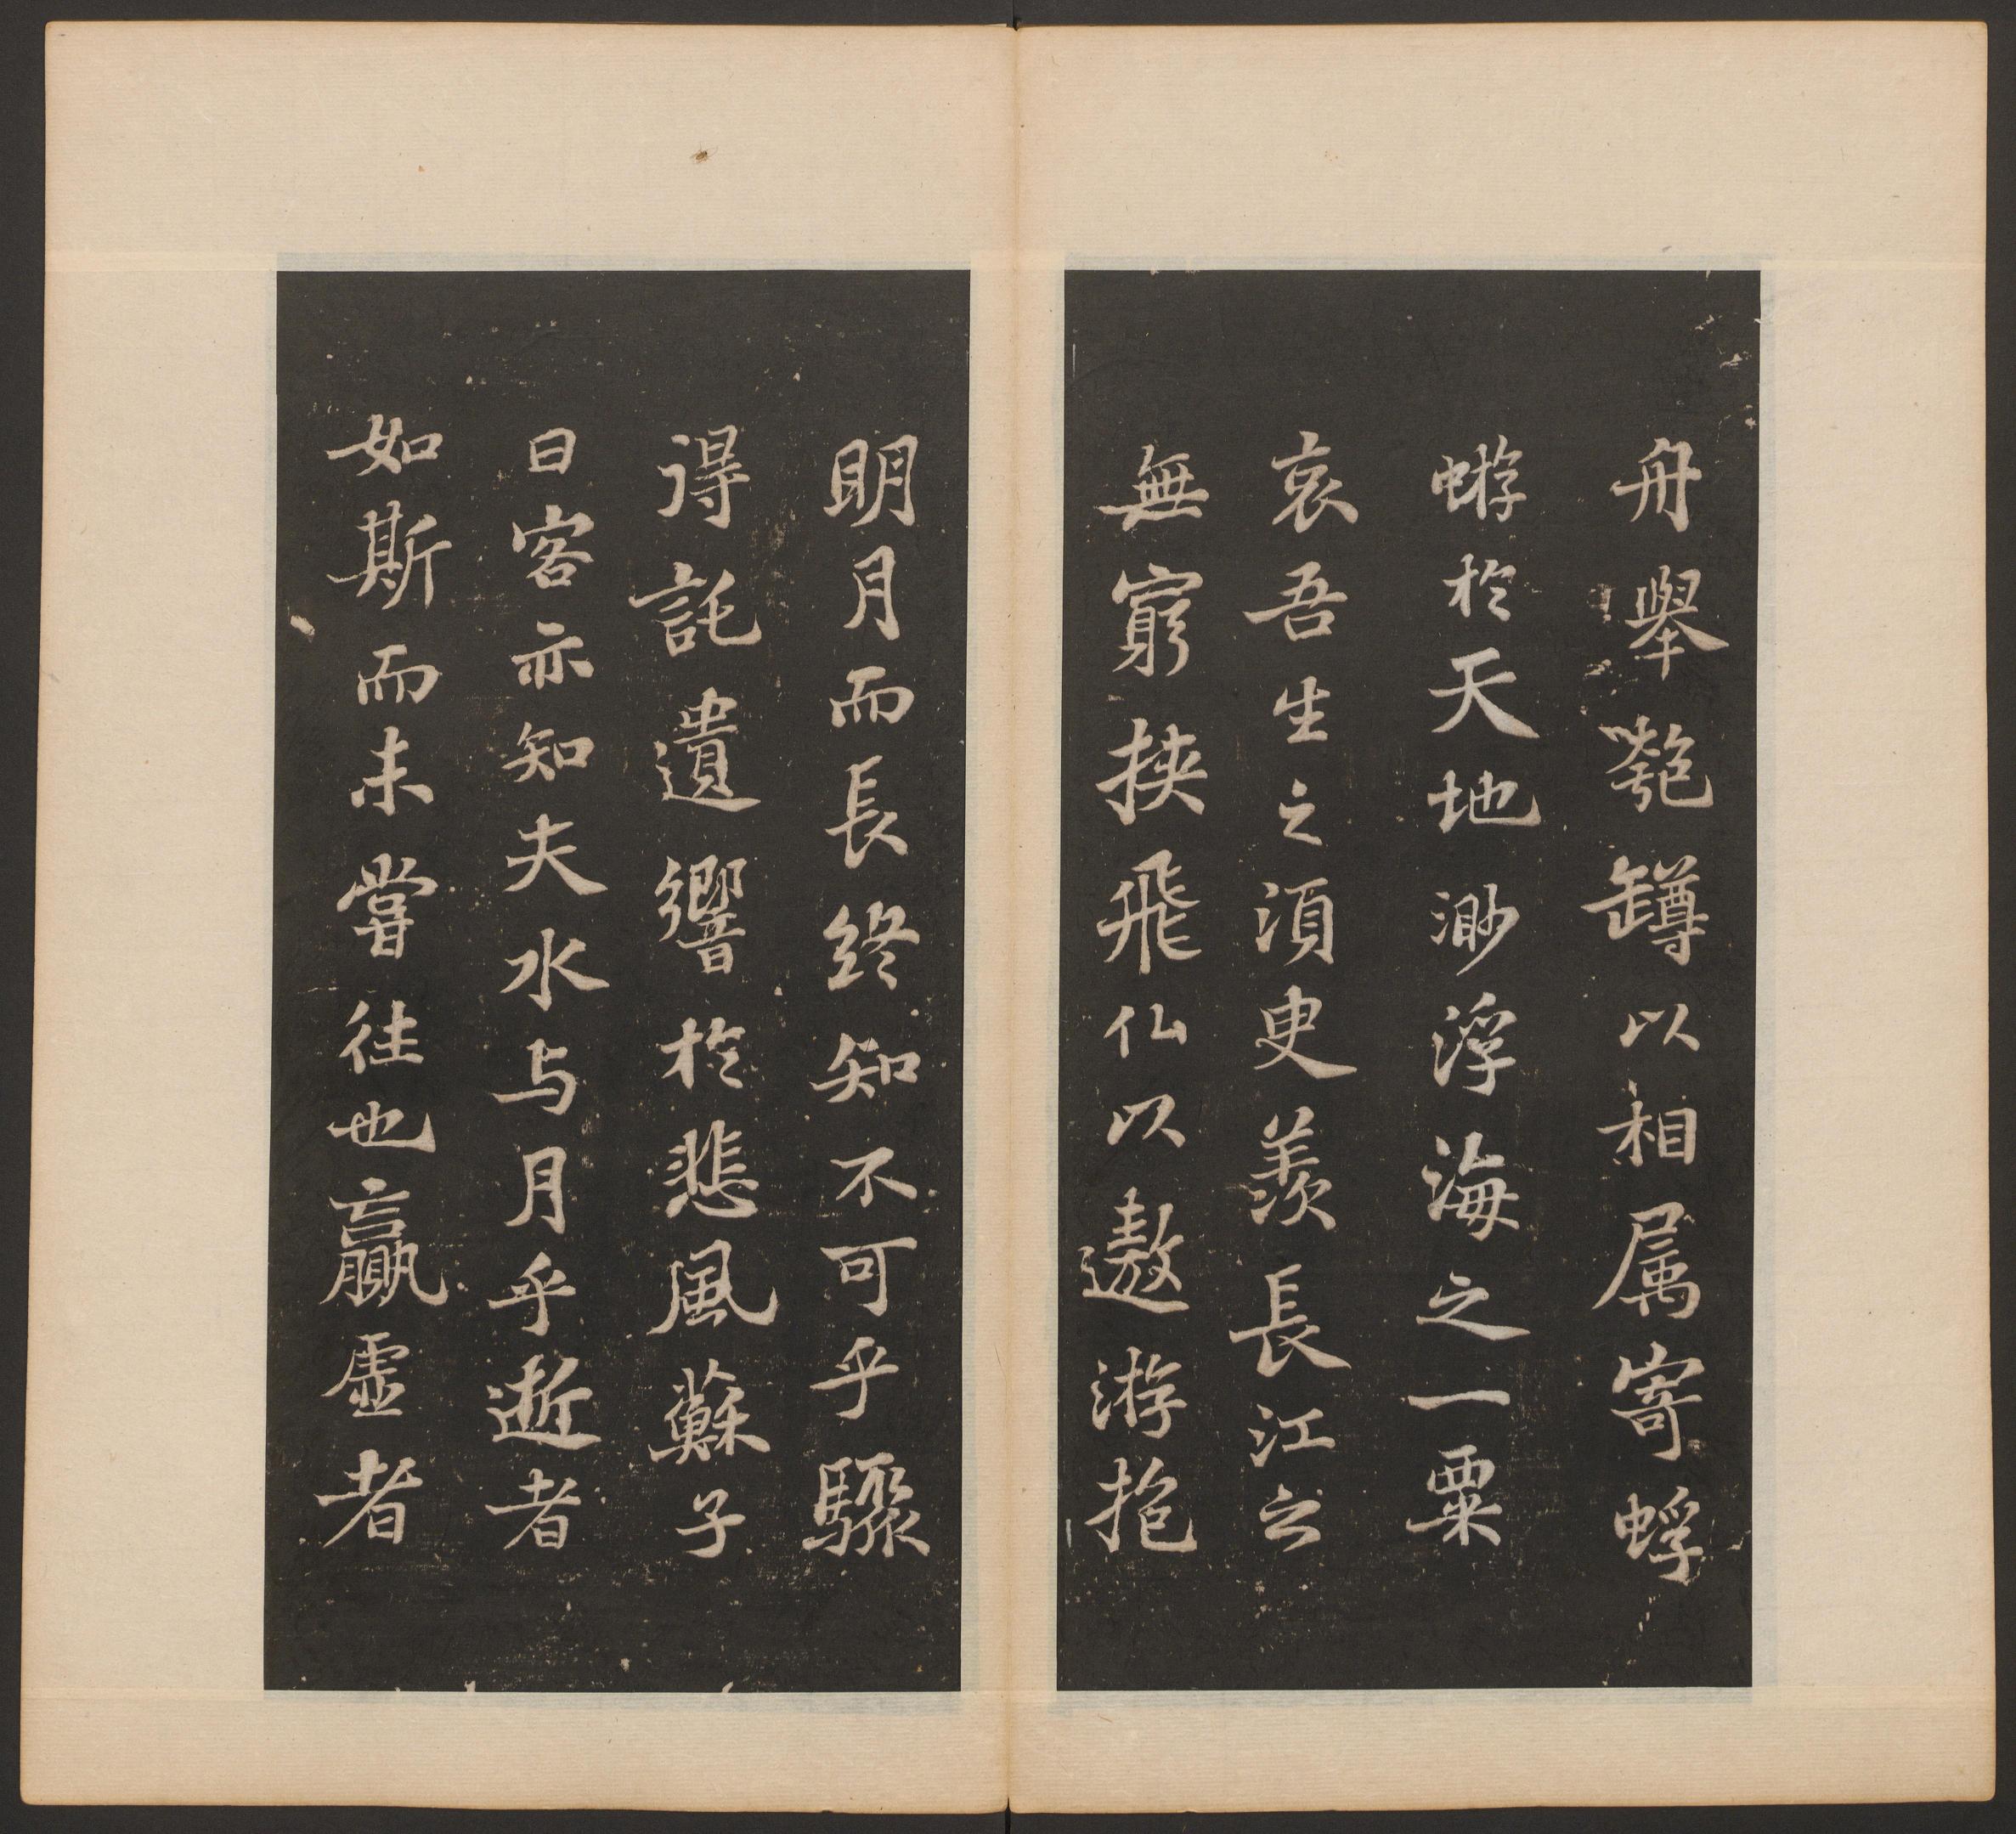 舟舉匏罇以相属寄蜉
蝣於天地渺浮海之一粟
哀吾生之湏臾羡長江之
無窮挾飛仙以遨游抱
明月而長終知不可乎驟
得託遺響於悲風蘇子
曰客亦知夫水与月乎逝者
如斯而未嘗往也贏虚者